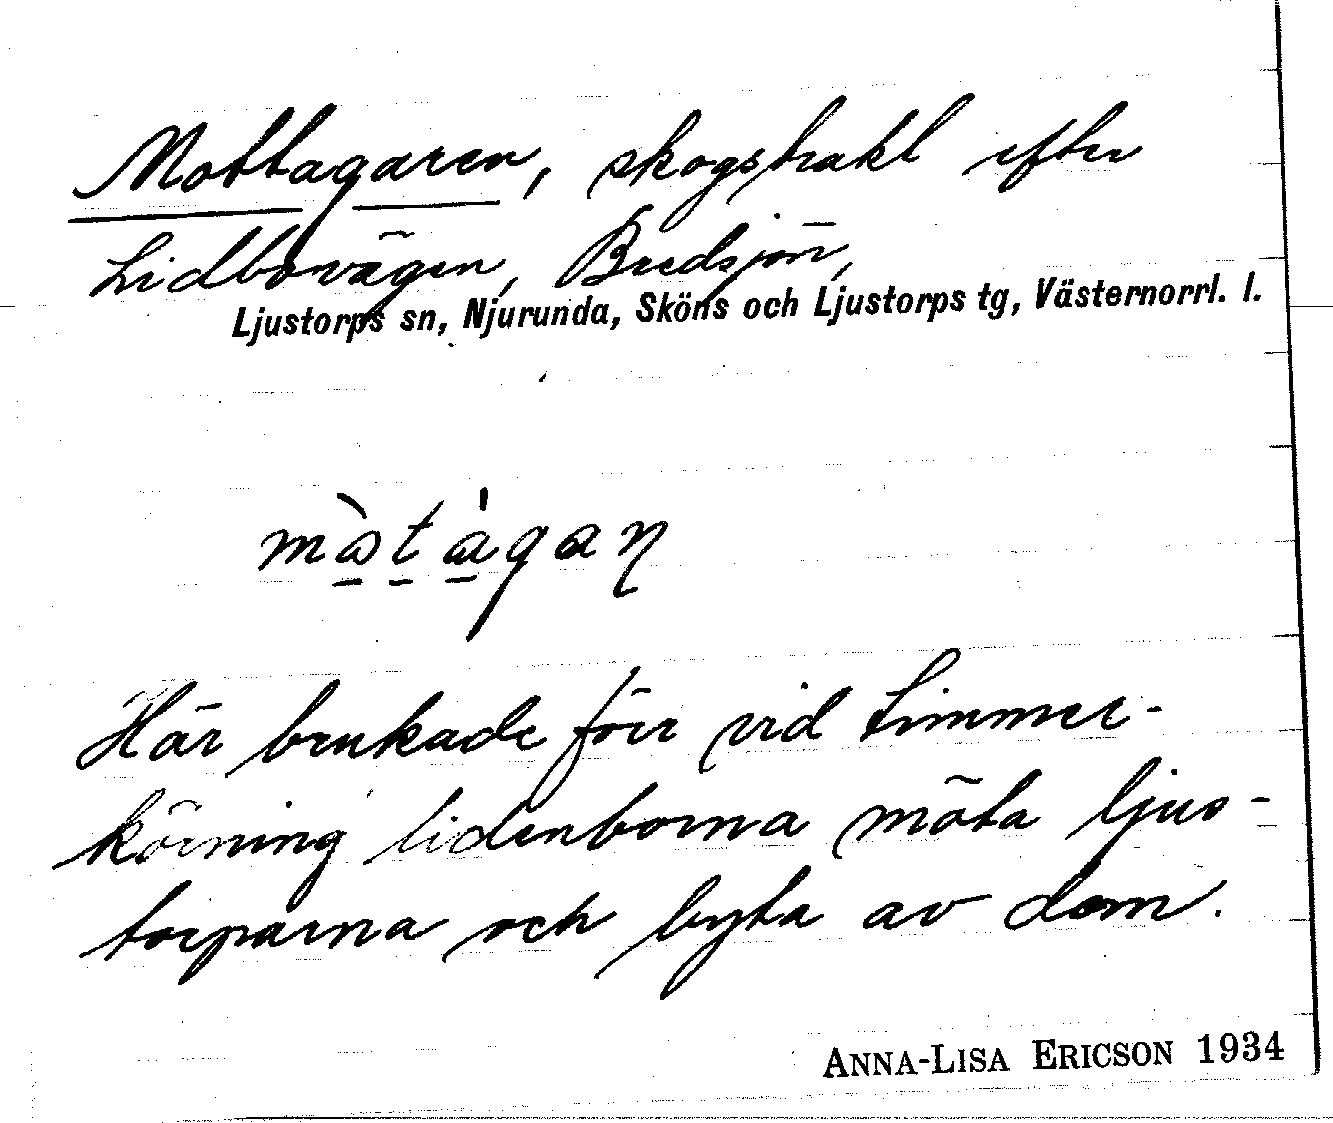 Mottagaren, skogstrakt efter
Lidbovägen, Bredsjön,
Ljustorps sn, Njurunda, Sköns och Ljustorps tg, Västernorrl. l.
mɷ̀tàgaɳ
Här brukade förr vid timmer-
körning lidenborna möta ljus-
torparna och byta av dom.
ANNA-LISA ERICSON 1934